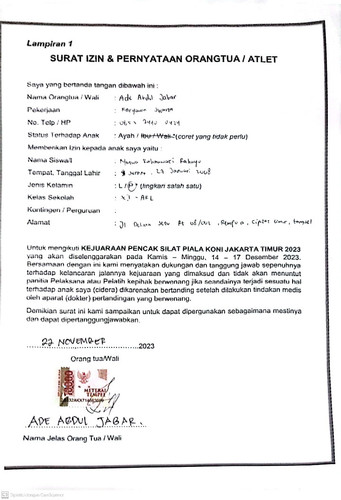 Lampiran 1
SURAT IZIN & PERNYATAAN ORANGTUA / ATLET
Saya yang bertanda tangan dibawah ini :
Nama Orangtua / Wali : Ade Abdul Jabar
Pekerjaan : Karyawan Swasta
No. Telp / HP :
Status Terhadap Anak : Ayah / Ibu / Wali *(coret yang tidak perlu)
Memberikan Izin kepada anak saya yaitu :
Nama Siswa/i :
Tempat, Tanggal Lahir : 23 Januari 2008
Jenis Kelamin : L / P * (lingkari salah satu)
Kelas Sekolah :
Kontingen / Perguruan :
Alamat : Jl
Untuk mengikuti KEJUARAAN PENCAK SILAT PIALA KONI JAKARTA TIMUR 2023
yang akan diselenggarakan pada Kamis – Minggu, 14 – 17 Desember 2023.
Bersamaan dengan ini kami menyatakan dukungan dan tanggung jawab sepenuhnya
terhadap kelancaran jalannya kejuaraan yang dimaksud dan tidak akan menuntut
panitia Pelaksana atau Pelatih kepihak berwenang jika seandainya terjadi sesuatu hal
terhadap anak saya (cidera) dikarenakan bertanding setelah dilakukan tindakan medis
oleh aparat (dokter) pertandingan yang berwenang.
Demikian surat ini kami sampaikan untuk dapat dipergunakan sebagaimana mestinya
dan dapat dipertanggungjawabkan.
22 NOVEMBER 2023
Orang tua/Wali
METERAI
TEMPEL
ADE ABDUL JABAR.
Nama Jelas Orang Tua / Wali